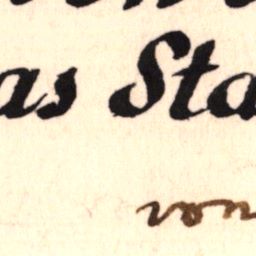 as Sta
von